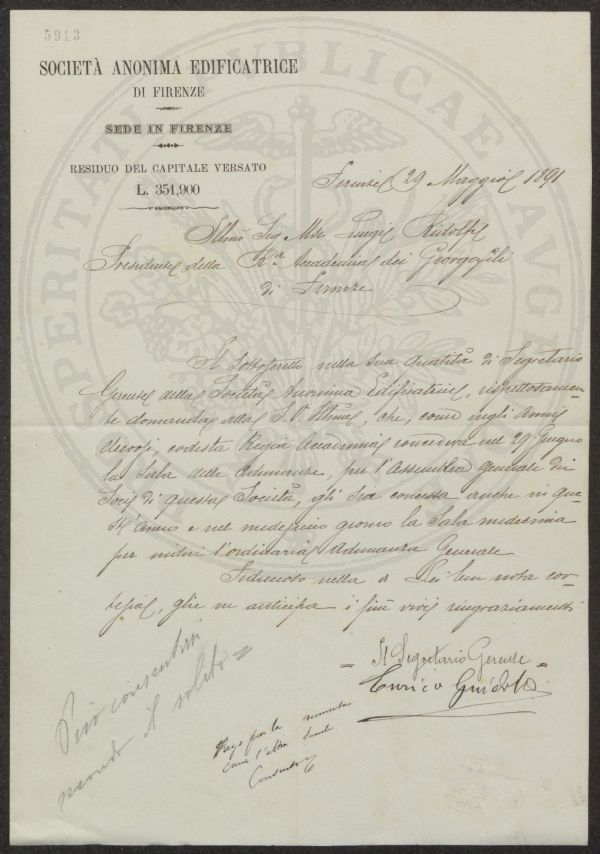 5913
SOCIETÀ ANONIMA EDIFICATRICE
DI FIRENZE
SEDE IN FIRENZE
RESIDUO DEL CAPITALE VERSATO
L. 351,900
Firenze 29 Maggio 1891
Illmo Sig Mse Luigi Ridolfi
Presidente della Ra Accademia dei Georgofili
di Firenze
Il sottoscritto nella sua qualità di Segretario
Gerente della Società Anonima Edificatrice, rispettosamen-
te domanda alla S. V. Illma, che, come negli anni
decorsi, codesta Regia Accademia concedeva nel 29 Giugno
la Sala delle Adunanze, per l'Assemblea generale dei
Socj di questa Società, gli sia concessa anche in que-
st'anno e nel medesimo giorno la Sala medesima
per tenervi l'ordinaria Adunanza Generale
Fiducioso nella di Lei ben nota cor-
tesia, glie ne anticipa i più vivi ringraziamenti
Il Segretario Gerente
Enrico Guidotti
Può consentirsi
secondo il solito
come l'altra
PROSPERITATI PUBLICAE AUGENDAE